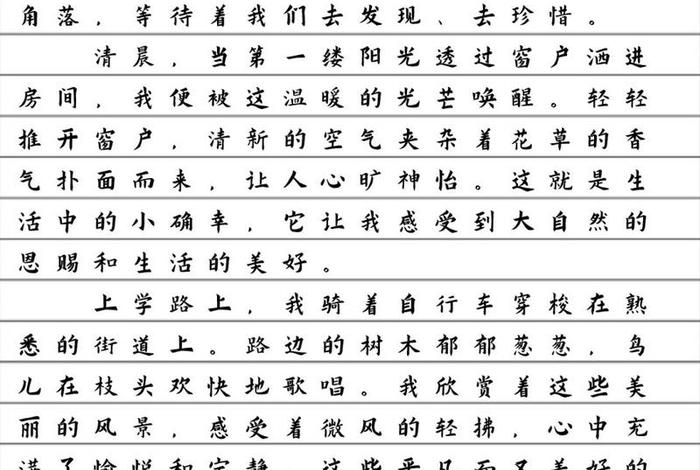 角落，等待着我们去发现、去珍惜。
清晨，当第一缕阳光透过窗户洒进
房间，我便被这温暖的光芒唤醒。轻轻
推开窗户，清新的空气夹杂着花草的香
气扑面而来，让人心旷神怡。这就是生
活中的小确幸，它让我感受到大自然的
恩赐和生活的美好。
上学路上，我骑着自行车穿梭在熟
悉的街道上。路边的树木郁郁葱葱，鸟
儿在枝头欢快地歌唱。我欣赏着这些美
丽的风景，感受着微风的轻拂，心中充
满了愉悦和宁静。这些平凡而又美好的